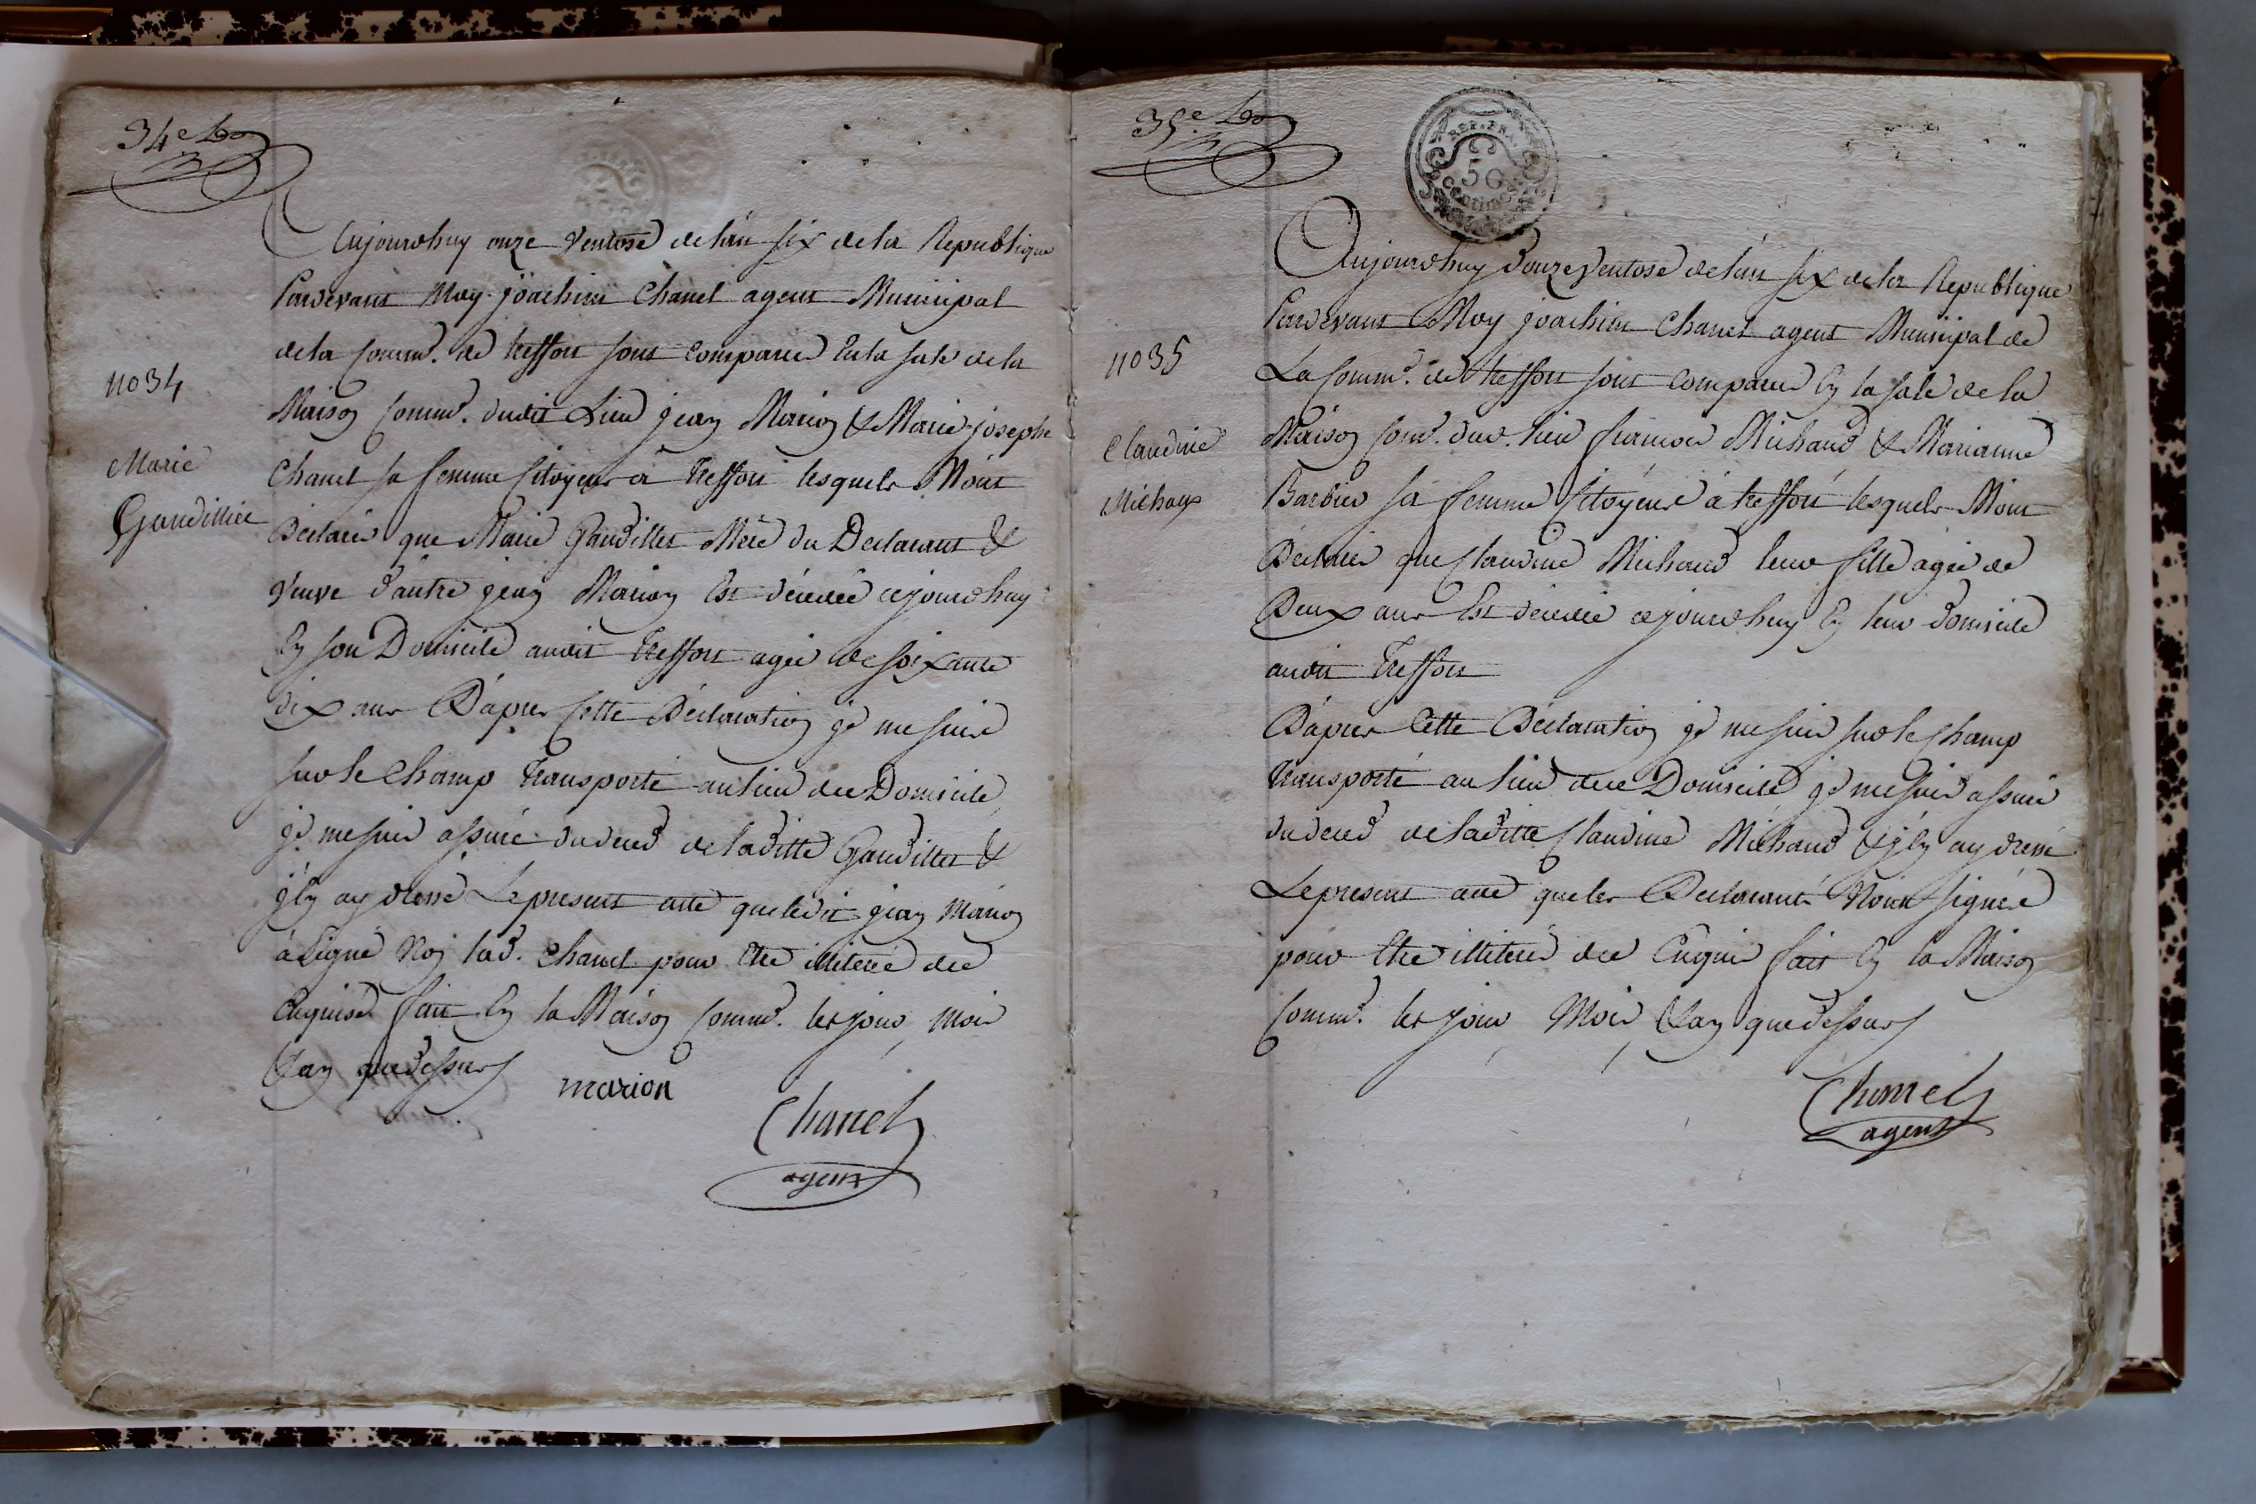 34e
no 34
Marie
Gaudillier
Aujourdhuy onze Ventose de lan six de la Republique
Pardevant Moy joachim Chanel agent Municipal
de la Commé. de treffort sont comparus En la sale de la
Maison Commé. dudit Lieu jean Marion & Marie josephe
Chanel sa femme Citoyens à treffort lesquels M'ont
Déclaré que Marie Gaudillet Mére du Declarant &
veuve d'autre jean Marion Est décédée cejourdhuy
En son Domicile audit treffort agée de soixante
dix ans D'apres Cette Déclaration je me suis
sur le Champ transporté au lieu dece Domicile,
je me suis assuré du deced de la ditte Gaudillet &
j'en ay dressé Le present acte que ledit jean Marion
à Signé Non lad. Chanel pour être illiterée dee
Enquise fait En la Maison Commé. les jour, mois
& an que dessus
marion
Chanel
agent
35e
REP. FRA.
50
centimes
no 35
Claudine
Michaux
Aujourdhuy douze Ventose de lan six de la Republique
Pardevant Moy joachim Chanel agent Municipal de
La Commé. de treffort sont comparus En la sale de la
Maison Comé. dud. lieu francois Michaud & Marianne
Barbier sa femme Citoyens à treffort lesquels M'ont
Déclaré que Claudine Michaud leur fille agée de
Deux ans Est décédée cejourdhuy En leur domicile
audit treffort
D'apres Cette Déclaration je me suis sur le Champ
transporté au lieu dece Domicile je me suis assuré
du deced de la ditte Claudine Michaud & j'en ay dressé
Le present acte que les Declarants N'ont signés
pour être illiterés dee Enquis fait En la Maison
Commé. les jour Mois & an que dessus
Chanel
agent